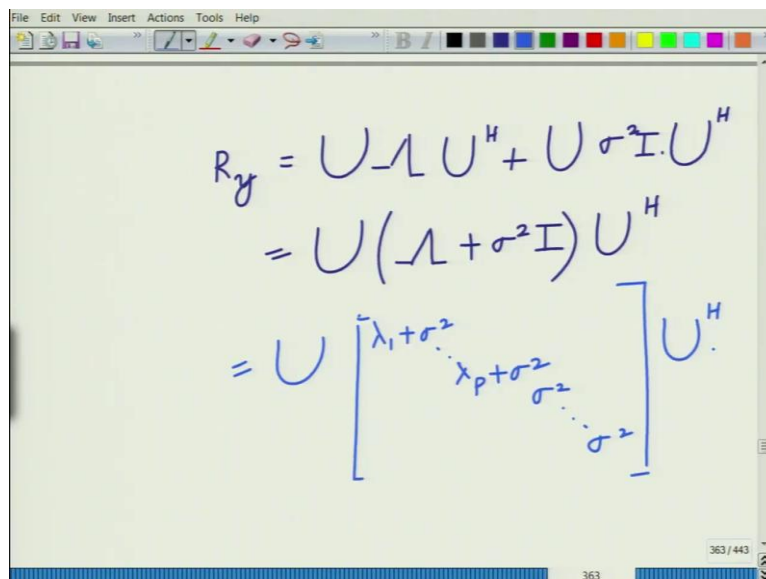 File Edit View Insert Actions Tools Help
B I
R_y = U Λ U^H + U σ²I.U^H
= U(Λ + σ²I) U^H
= U [λ₁+σ² ⋱ λ_p+σ² σ² ⋱ σ²] U^H.
363 / 443
363